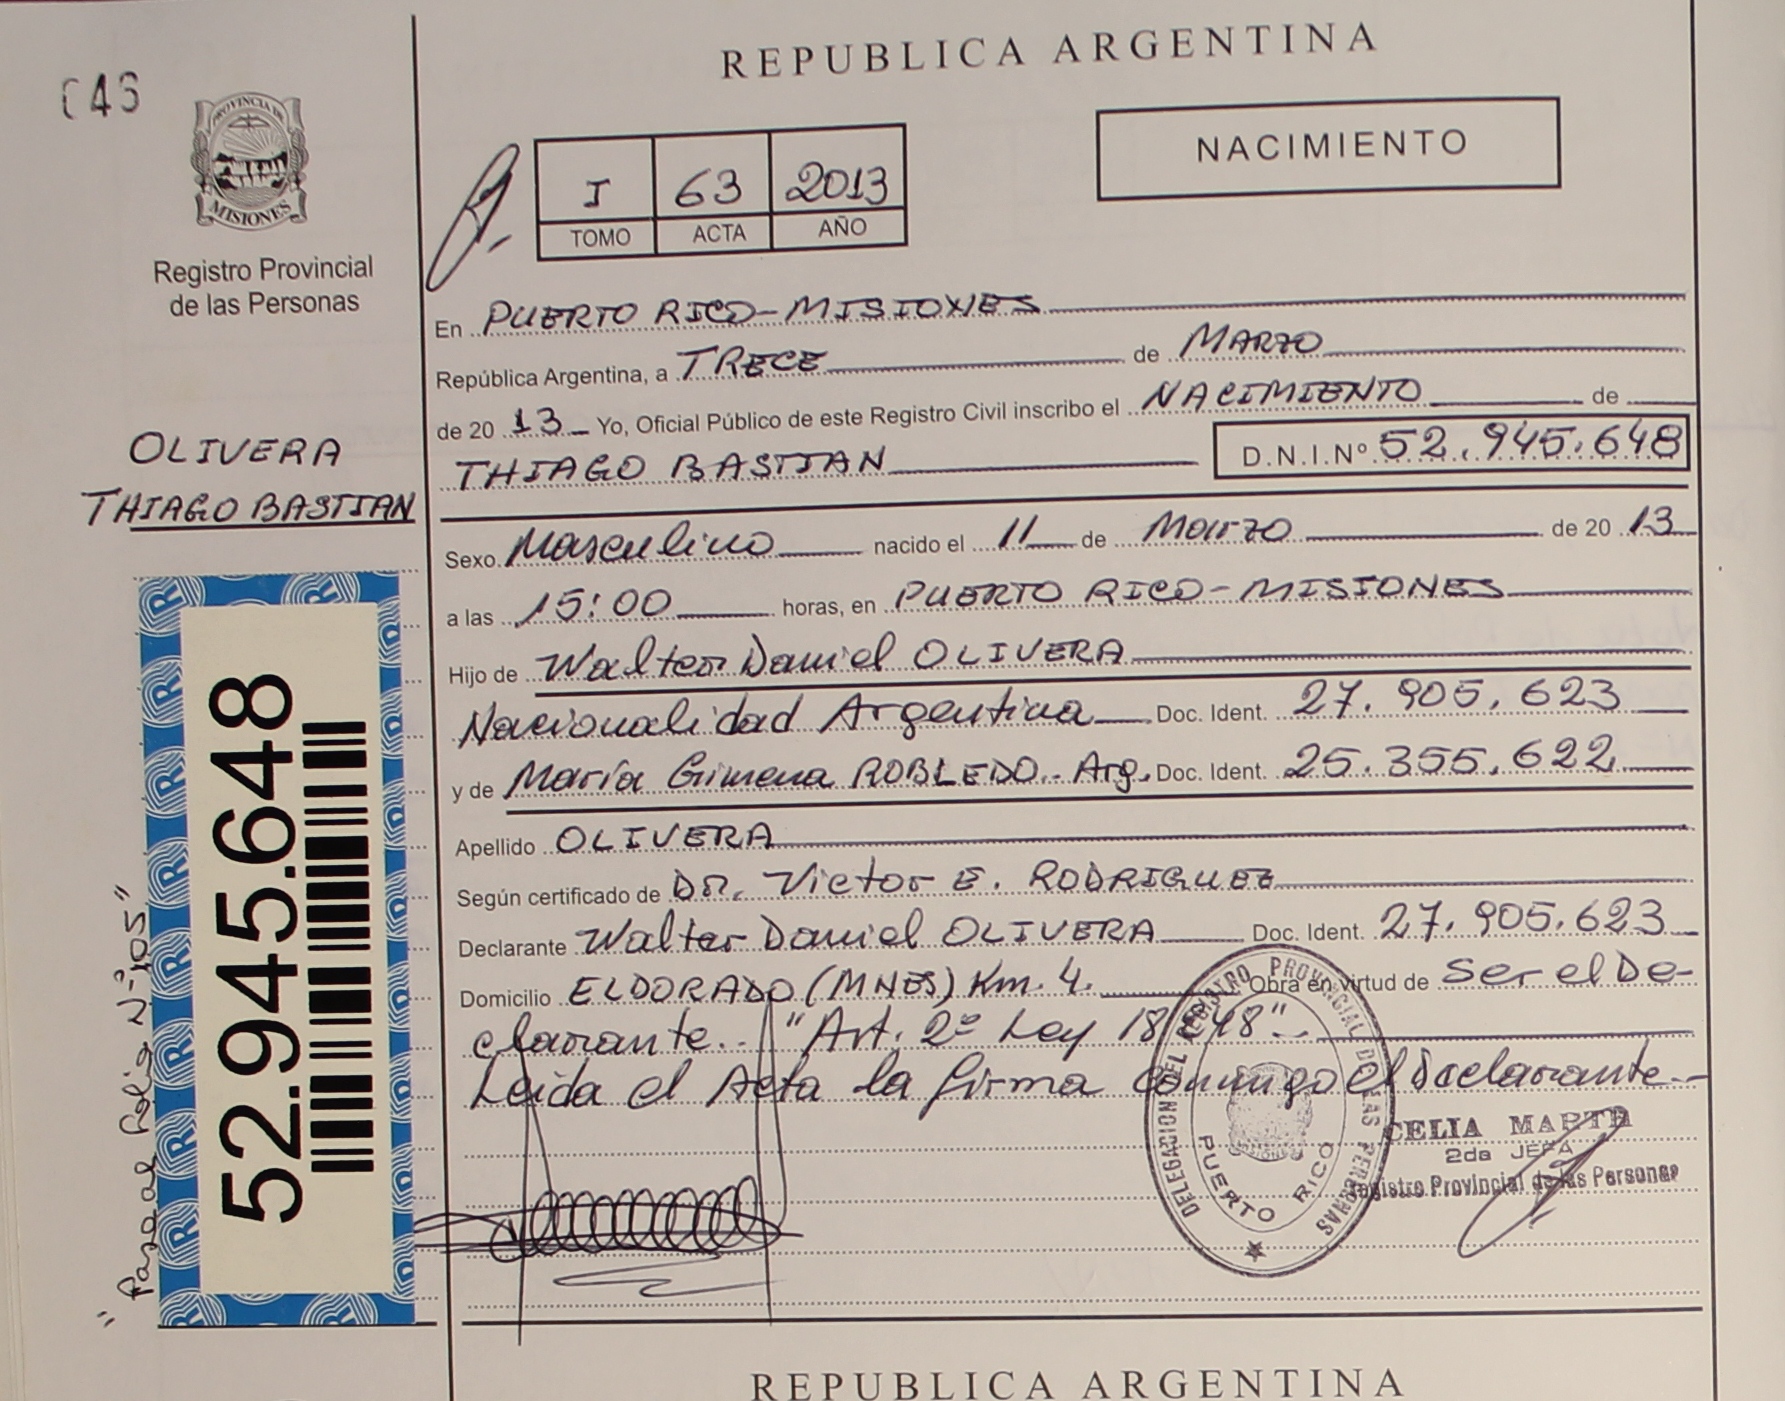 REPUBLICA ARGENTINA
PROVINCIA DE
MISIONES
Registro Provincial
de las Personas
NACIMIENTO
I 63 2013
TOMO ACTA AÑO
En PUERTO RICO-MISIONES
República Argentina, a TRECE de MARZO
de 20 13 Yo, Oficial Público de este Registro Civil inscribo el NACIMIENTO de
THIAGO BASTIAN D.N.I.Nº 52.945.648
OLIVERA
THIAGO BASTIAN
Sexo Masculino nacido el 11 de Marzo de 20 13
a las 15:00 horas, en PUERTO RICO-MISIONES
Hijo de Walter Daniel OLIVERA
Nacionalidad Argentina Doc. Ident. 27.905.623
y de María Gimena ROBLEDO.. Arg. Doc. Ident. 25.355.622
Apellido OLIVERA
Según certificado de DR. Victor E. RODRIGUEZ
Declarante Walter Daniel OLIVERA Doc. Ident. 27.905.623
Domicilio ELDORADO (MNES) Km. 4. Obra en virtud de Ser el De-
clarante.. "Art. 2º Ley
Leida el Acta la firma conmigo el Declarante.-
52.945.648
DELEGACION DEL REGISTRO PROVINCIAL DE LAS PERSONAS
PUERTO RICO
CELIA
2da JEFA
Registro Provincial de las Personas
REPUBLICA ARGENTINA